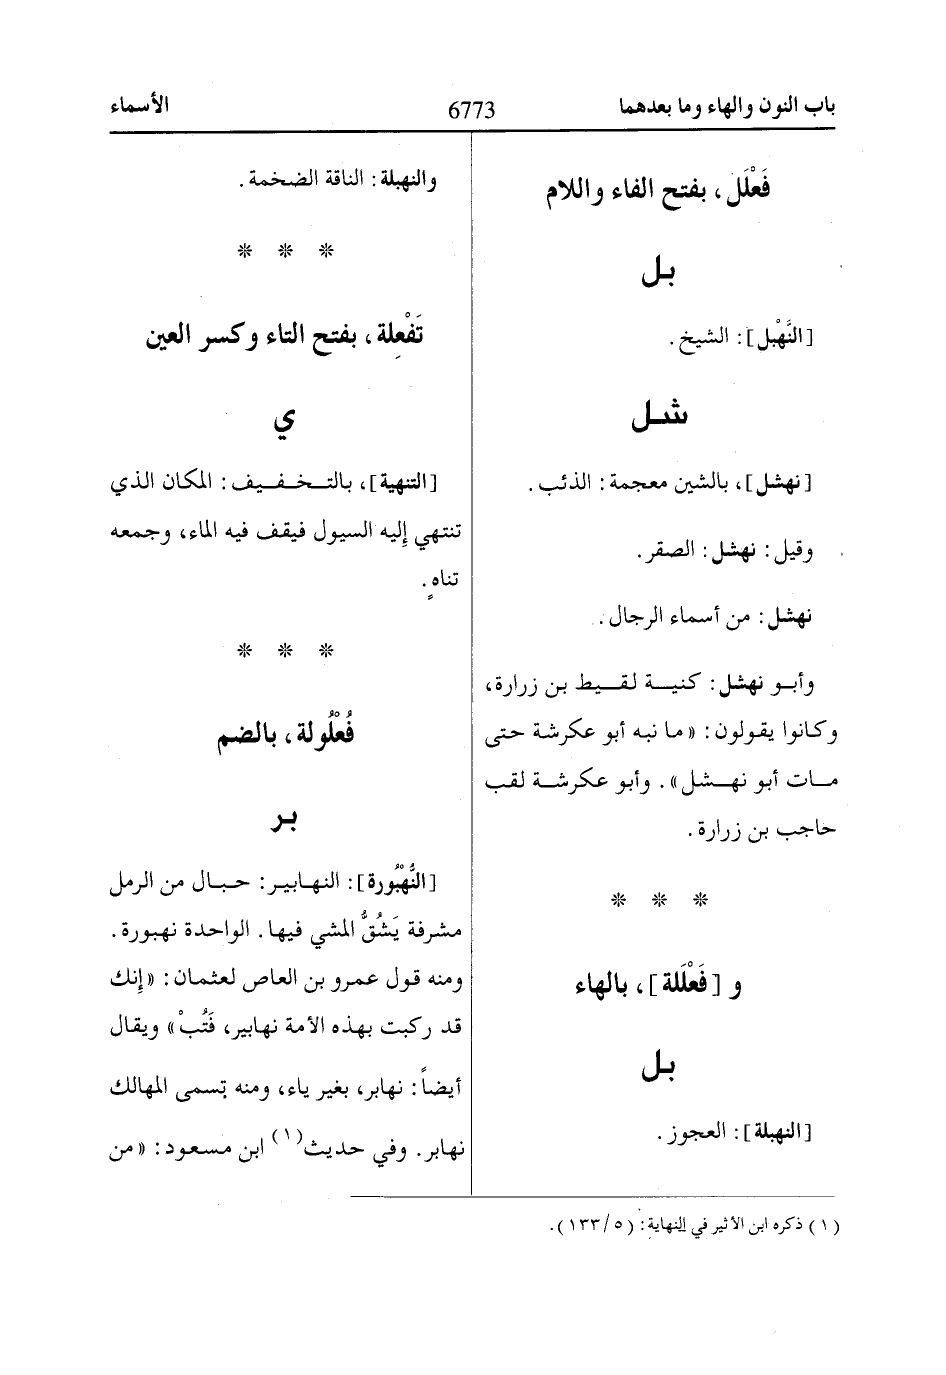 باب النون والهاء وما بعدهما
6773
الأسماء
فَعْلَل، بفتح الفاء واللام
بل
[النَّهْبل]: الشيخ.
شل
[نهشل]، بالشين معجمة: الذئب.
وقيل: نهشل: الصقر.
نهشل: من أسماء الرجال.
وأبو نهشل: كنية لقيط بن زرارة،
وكانوا يقولون: «ما نبه أبو عكرشة حتى
مات أبو نهشل». وأبو عكرشة لقب
حاجب بن زرارة.
* * *
و [فَعْلَلة]، بالهاء
بل
[النهبلة]: العجوز.
والنهبلة: الناقة الضخمة.
* * *
تَفْعِلة، بفتح التاء وكسر العين
ي
[التنهية]، بالتخفيف: المكان الذي
تنتهي إليه السيول فيقف فيه الماء، وجمعه
تناهٍ.
* * *
فُعْلُولة، بالضم
بر
[النُّهْبُورة]: النهابير: حبال من الرمل
مشرفة يَشُقُّ المشي فيها. الواحدة نهبورة.
ومنه قول عمرو بن العاص لعثمان: «إنك
قد ركبت بهذه الأمة نهابير، فَتُبْ» ويقال
أيضاً: نهابر، بغير ياء، ومنه تسمى المهالك
نهابر. وفي حديث(١) ابن مسعود: «من
(١) ذكره ابن الأثير في النهاية: (٥/١٣٣).